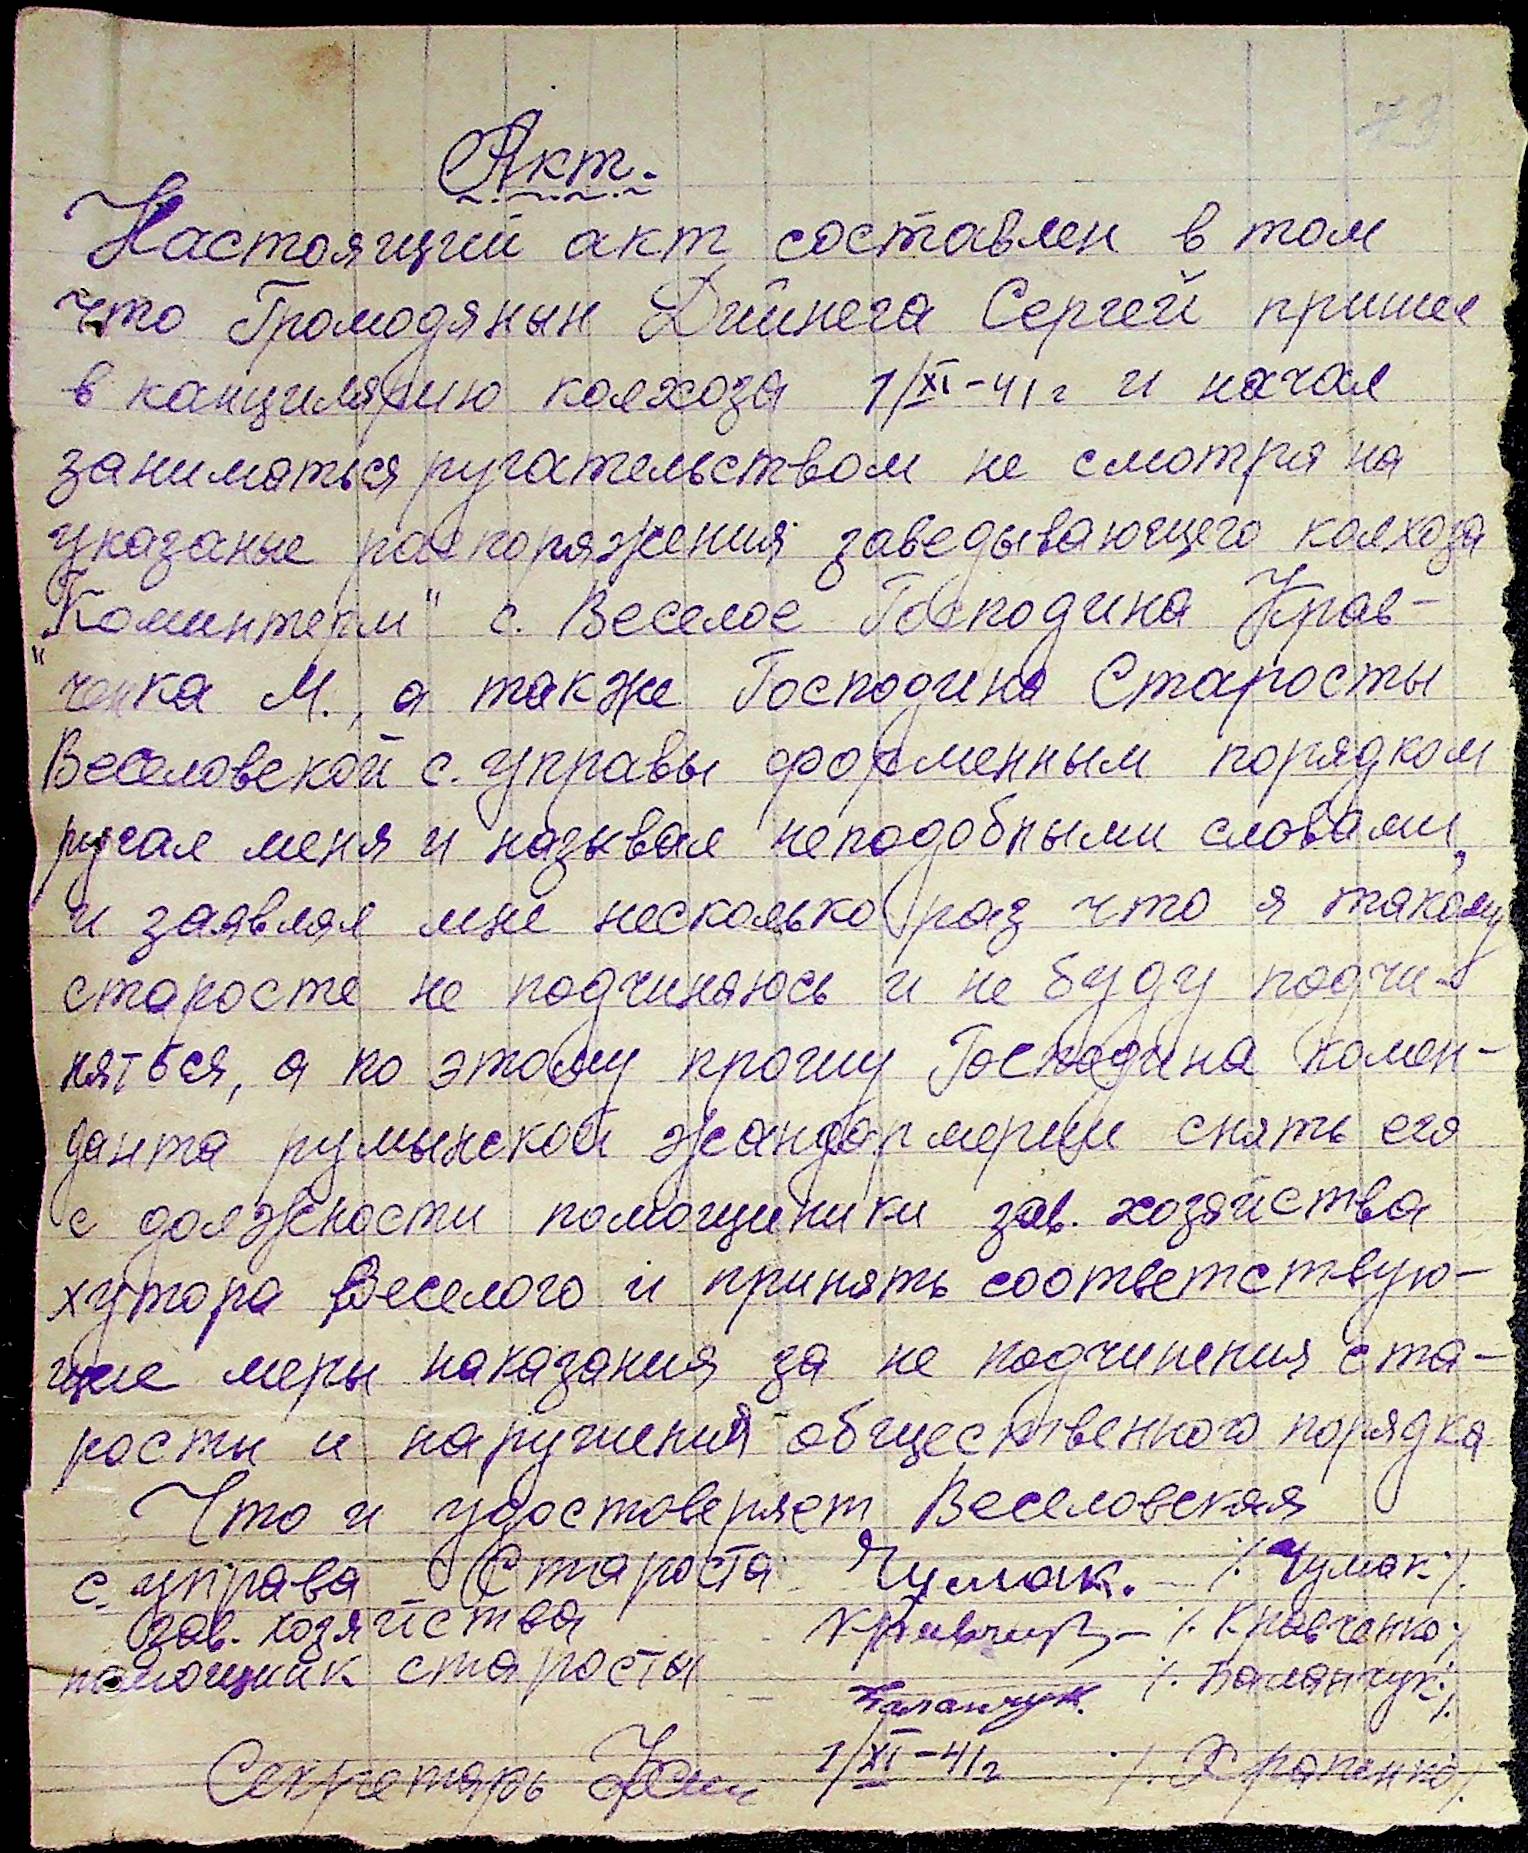 73
Акт.
Настоящий акт составлен в том
что Громодянын Дийнега Сергей пришел
в канцилярию колхоза 1/XI-41г и начал
заниматься ругательством не смотря на
указаные распоряжения заведывающего колхоза
"Коминтерм" с. Веселое Господина Крав-
"ченка М., а также Господина Старосты
Веселовской с. управы форменным порядком
ругал меня и называл неподобными словами,
и заявлял мне несколько раз что я такому
старосте не подчиняюсь и не буду подчи-
няться, а по этому прошу Господина комен-
данта румынской жандармерии снять его
с должности помощники зав. хозяйства
хутора Веселого и принять соответствую-
щие меры наказания за не подчинения ста-
росты и нарушения общественного порядка
Что и удостоверяет Веселовская
с. управа Староста Чумак. - /. Чумак /.
зав. хозяйства - /. Кравченко /.
помощник старосты Баланчук. /. Баланчук /.
Секретарь 1/XI-41г /. Храпенко /.